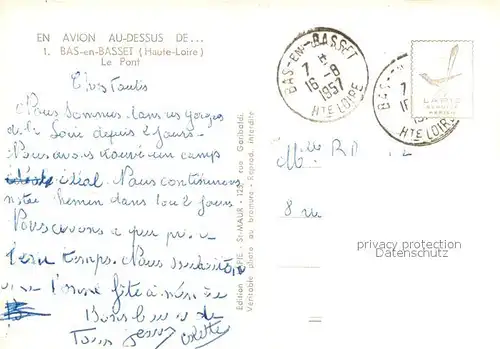 EN AVION AU-DESSUS DE...
1. BAS-en-BASSET (Haute-Loire)
Le Pont
Nous sommes dans les gorges
de la Loire depuis 2 jours.
Nous avons trouvé un camp
idéal. Nous continuerons
notre chemin dans 1 ou 2 jours.
Nous avons a peu près
beau temps. Nous souhaitons
une bonne fête à
Bons baisers de
Tous
Colette
Edition LAPIE - St-MAUR - 123, rue Garibaldi.
Véritable photo au bromure - Reprod. interdite
BAS-EN-BASSET
7 H
16-8
1957
HTE LOIRE
BAS
7
HTE LOIRE
LAPIE
SERVICE
AERIEN
Mlle
8 rue
privacy protection
Datenschutz